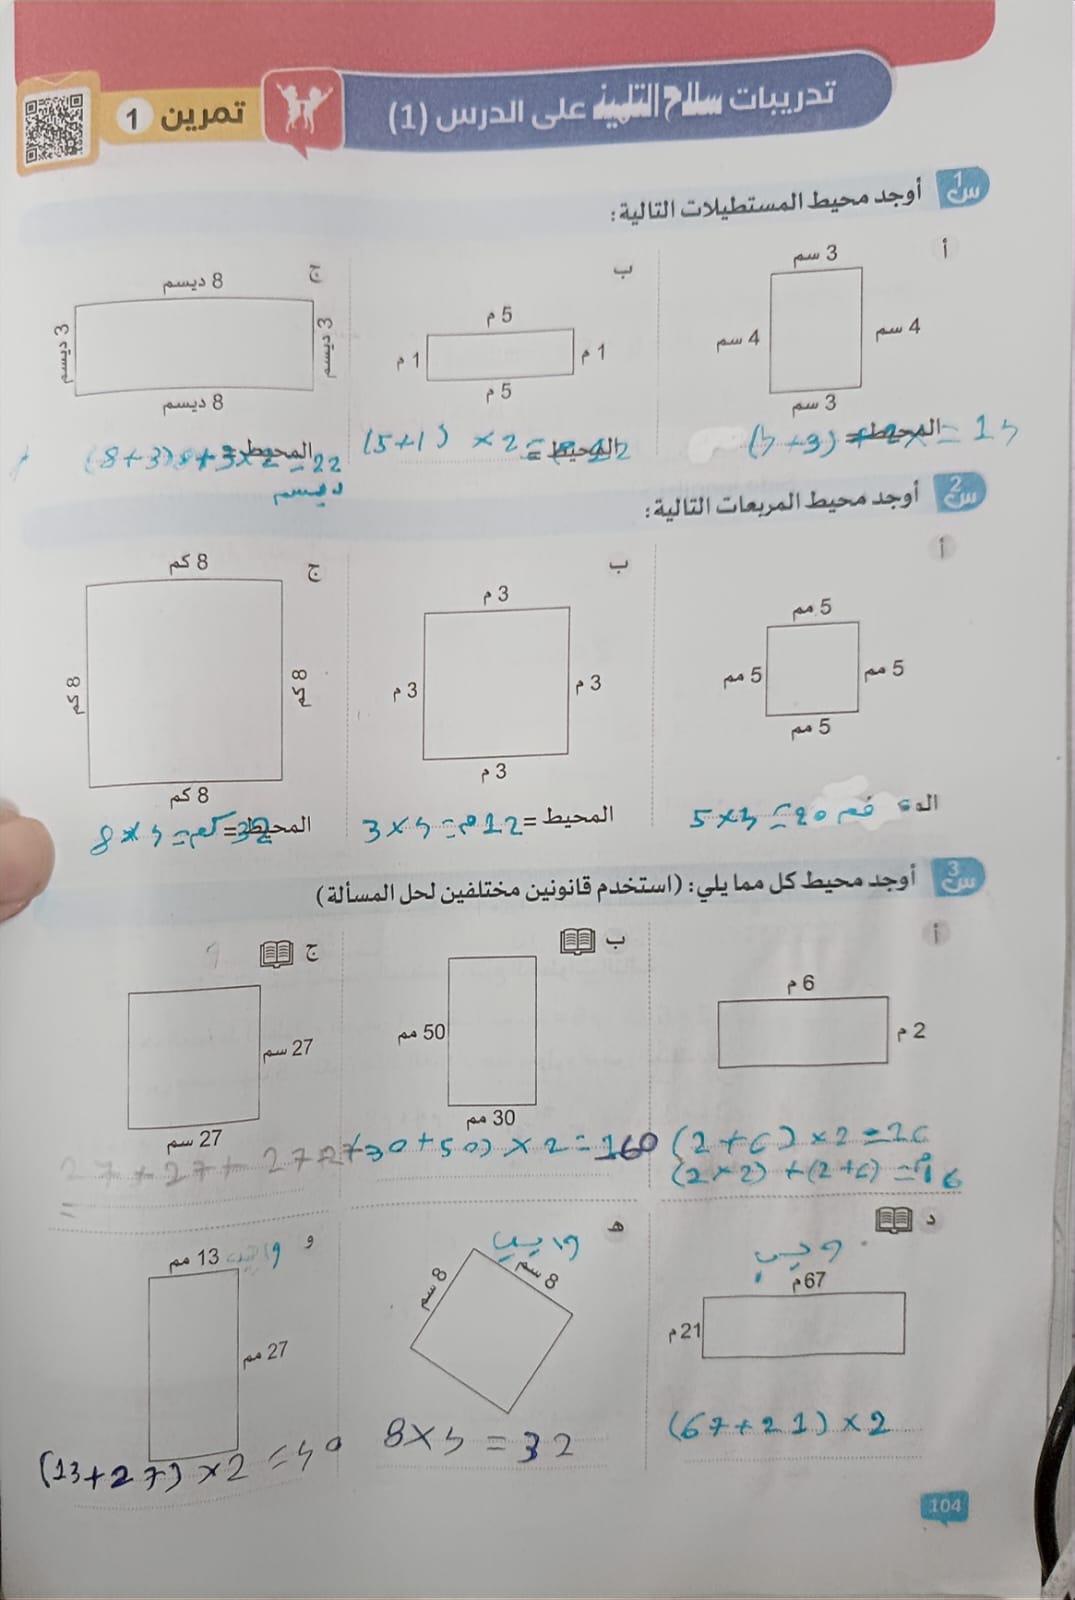 تدريبات سلاح التلميذ على الدرس (1)
تمرين 1
س1 أوجد محيط المستطيلات التالية:
أ
3 سم
4 سم
4 سم
3 سم
المحيط=
ب
5 م
1 م
1 م
5 م
(5+1) ×2 = 12
المحيط =
ج
8 ديسم
3 ديسم
3 ديسم
8 ديسم
المحيط =
22
ديسم
س2 أوجد محيط المربعات التالية:
أ
5 مم
5 مم
5 مم
5 مم
5×4 = 20 مم
ب
3 م
3 م
3 م
3 م
المحيط =
3×4 = 12م
ج
8 كم
8 كم
8 كم
8 كم
المحيط=
8×4 = 32كم
س3 أوجد محيط كل مما يلي: (استخدم قانونين مختلفين لحل المسألة)
أ
6 م
2 م
(2+6) ×2 =16
(2×2) +(2+6) = 16
ب
50 مم
30 مم
(30+50) ×2 = 160
ج
27 سم
27 سم
27+27+27+27
=
د
67م
21 م
(67+21) ×2
هـ
واجب
8 سم
8 سم
8×4 = 32
و
واجب
13 مم
27 مم
(13+27) ×2 =40
104